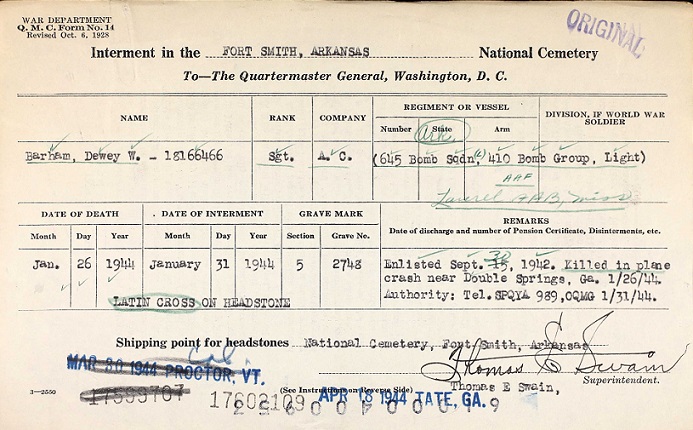 WAR DEPARTMENT
Q. M. C. Form No. 14
Revised Oct. 6, 1928
ORIGINAL
Interment in the FORT SMITH, ARKANSAS National Cemetery
To—The Quartermaster General, Washington, D. C.
NAME RANK COMPANY REGIMENT OR VESSEL DIVISION, IF WORLD WAR SOLDIER
Number State Arm
Ark.
Barham, Dewey W. - 18166466 Sgt. A. C. (645 Bomb Sqdn, (L) 410 Bomb Group, Light)
AAF
Laurel AAB, Miss
DATE OF DEATH DATE OF INTERMENT GRAVE MARK REMARKS
Date of discharge and number of Pension Certificate, Disinterments, etc.
Month Day Year Month Day Year Section Grave No.
Jan. 26 1944 January 31 1944 5 2748
Enlisted Sept. 15, 1942. Killed in plane
crash near Double Springs, Ga. 1/26/44.
Authority: Tel. SPQYA 989, OQMG 1/31/44.
LATIN CROSS ON HEADSTONE
Shipping point for headstones National Cemetery, Fort Smith, Arkansas
Thomas E Swain
MAR 30 1944 PROCTOR, VT.
Superintendent.
Thomas E Swain,
3—2550
(See Instructions on Reverse Side)
17602109
APR 18 1944 TATE, GA.